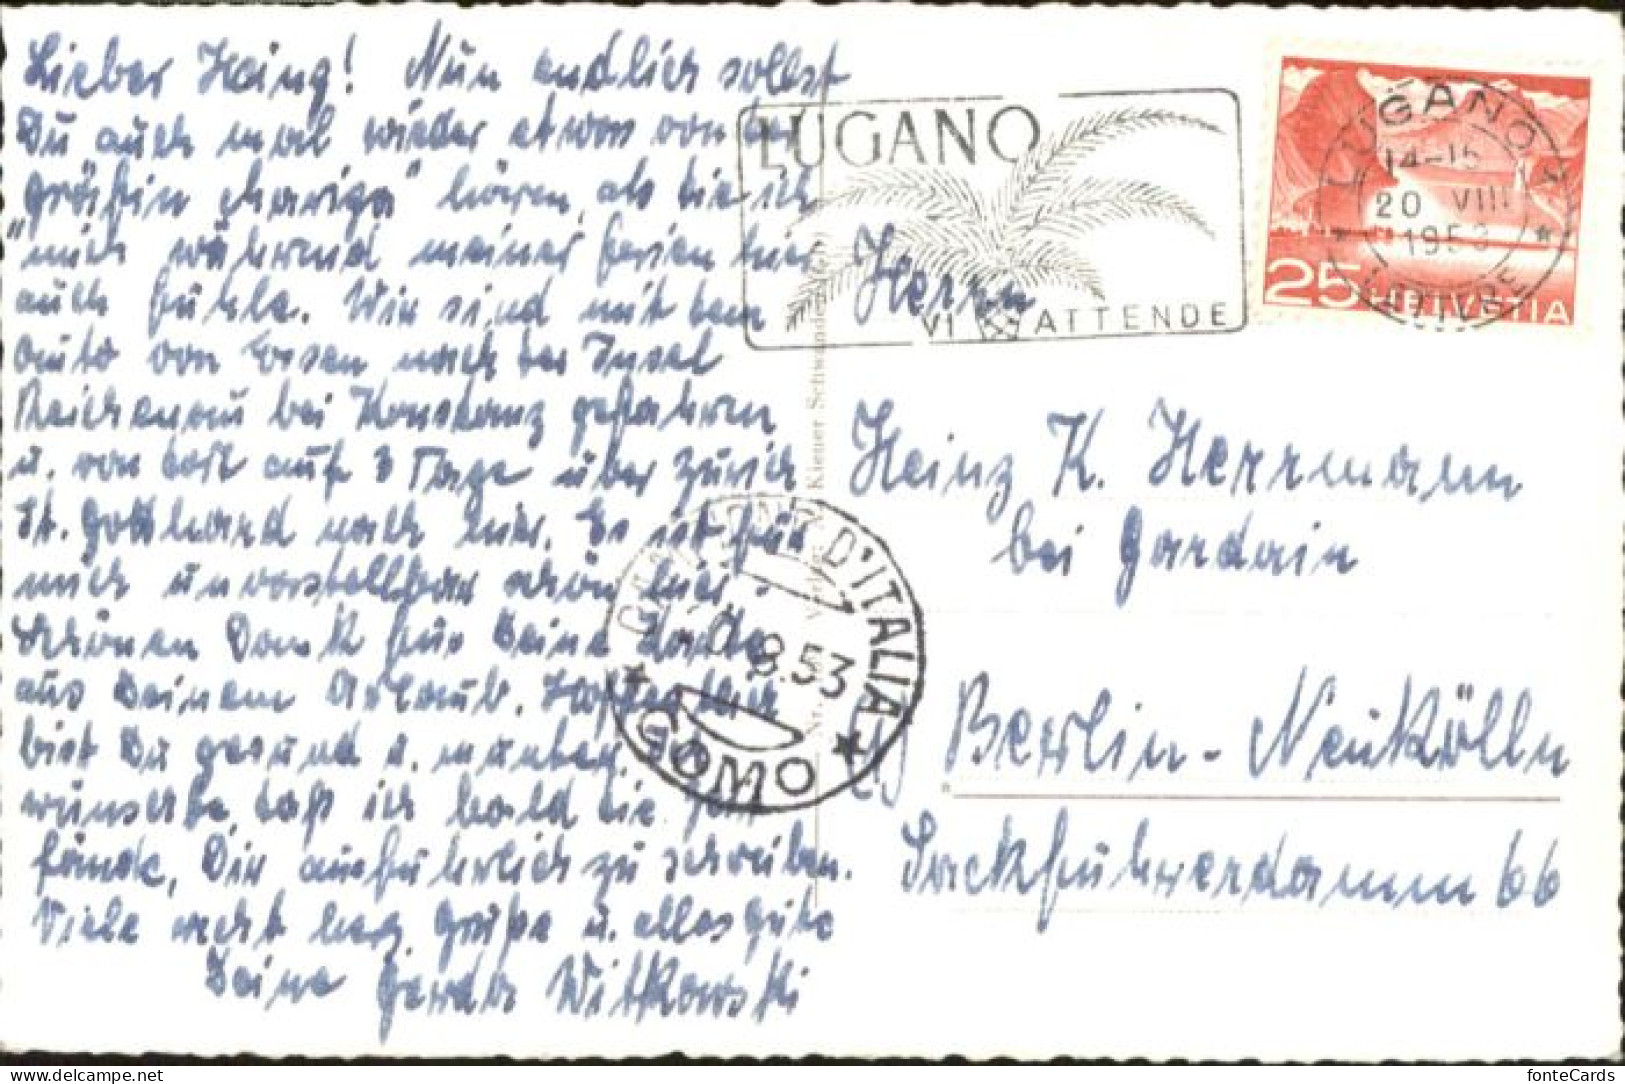 Lieber Heinz! Nun endlich sollst
Du auch mal wieder etwas von der
"Gräfin Mariza" hören, als die ich
mich während meiner Ferien hier
auch fühle. Wir sind mit dem
Auto von Essen nach der Insel
Reichenau bei Konstanz gefahren
u. von dort auf 3 Tage über Zürich
St. Gotthard nach hier. Es ist für
mich unvorstellbar schön hier.
Schönen Dank für Deine Karte
aus Deinem Urlaub. Hoffentlich
bist Du gesund u. munter.
wünschte, daß ich bald die Zeit
fände, Dir ausführlich zu schreiben.
Viele recht herz. Grüße u. alles Gute
Deine Gerda Witkowski
LUGANO
VI ATTENDE
LUGANO 1
14-15
20 VIII
1953
LETTERE
25 HELVETIA
D'ITALIA
8.53
COMO
Kiener Schwanden
Herrn
Heinz K. Herrmann
bei Gardain
Berlin-Neukölln
66
fonteCards